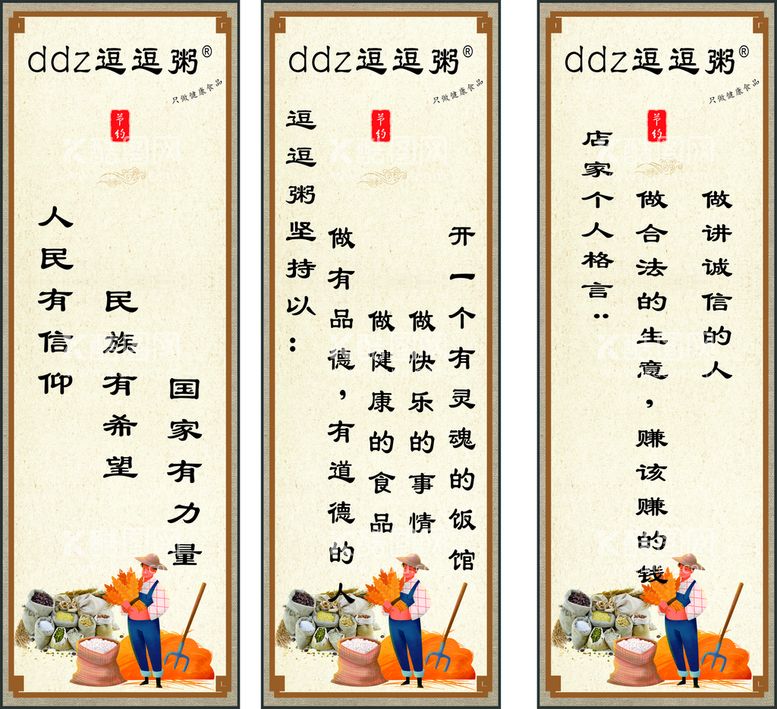 ddz逗逗粥®
只做健康食品
节约
人民有信仰
民族有希望
国家有力量
ddz逗逗粥®
只做健康食品
节约
逗逗粥坚持以：
做有品德，有道德的人
做健康的食品
做快乐的事情
开一个有灵魂的饭馆
ddz逗逗粥®
只做健康食品
节约
店家个人格言：
做合法的生意，赚该赚的钱
做讲诚信的人